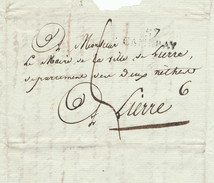 A Monsieur
Le Maire de la ville de Lierre,
departement des deux nethes
6
à Lierre